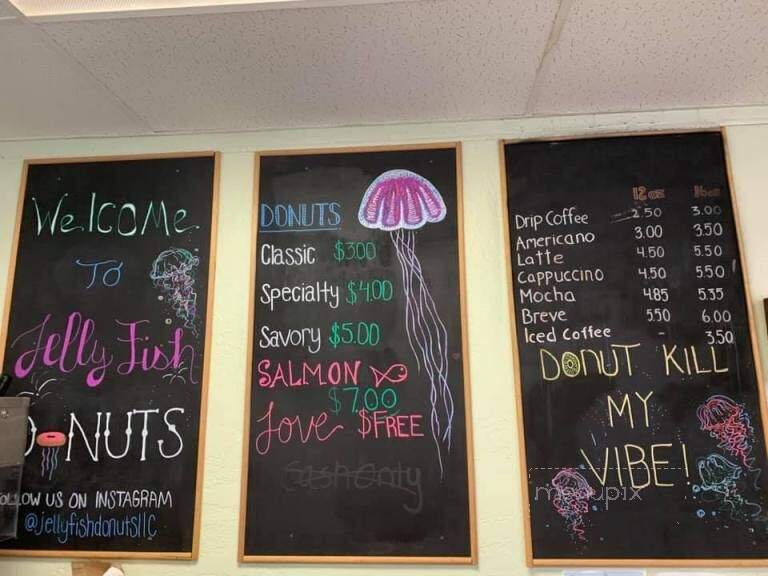 Welcome
To
Jelly Fish
DONUTS
FOLLOW US ON INSTAGRAM
@jellyfishdonutsllc
DONUTS
Classic $3.00
Specialty $4.00
Savory $5.00
SALMON
$7.00
Love $FREE
Cash Only
12 oz 16 oz
Drip Coffee 2.50 3.00
Americano 3.00 3.50
Latte 4.50 5.50
Cappuccino 4.50 5.50
Mocha 4.85 5.35
Breve 5.50 6.00
Iced Coffee - 3.50
DONUT KILL
MY
VIBE!
menupix